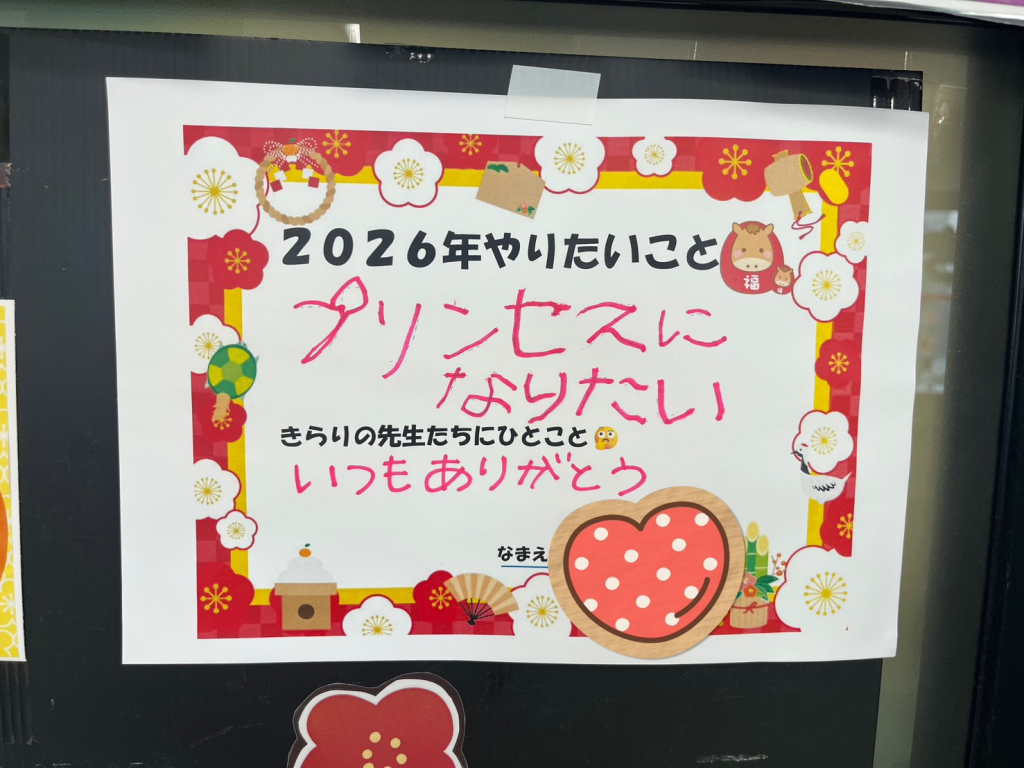 ２０２６年やりたいこと
福
プリンセスに
なりたい
きらりの先生たちにひとこと
いつもありがとう
なまえ